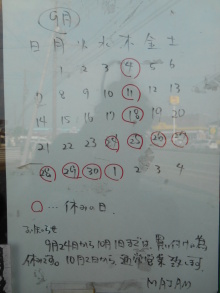 9月
日 月 火 水 木 金 土
1 2 3 4 5 6
7 8 9 10 11 12 13
14 15 16 17 18 19 20
21 22 23 24 25 26 27
28 29 30 1 2 3 4
○…休みの日
9月24日から10月1日まで、買い付けの為、
休みです。10月2日から通常営業致します。